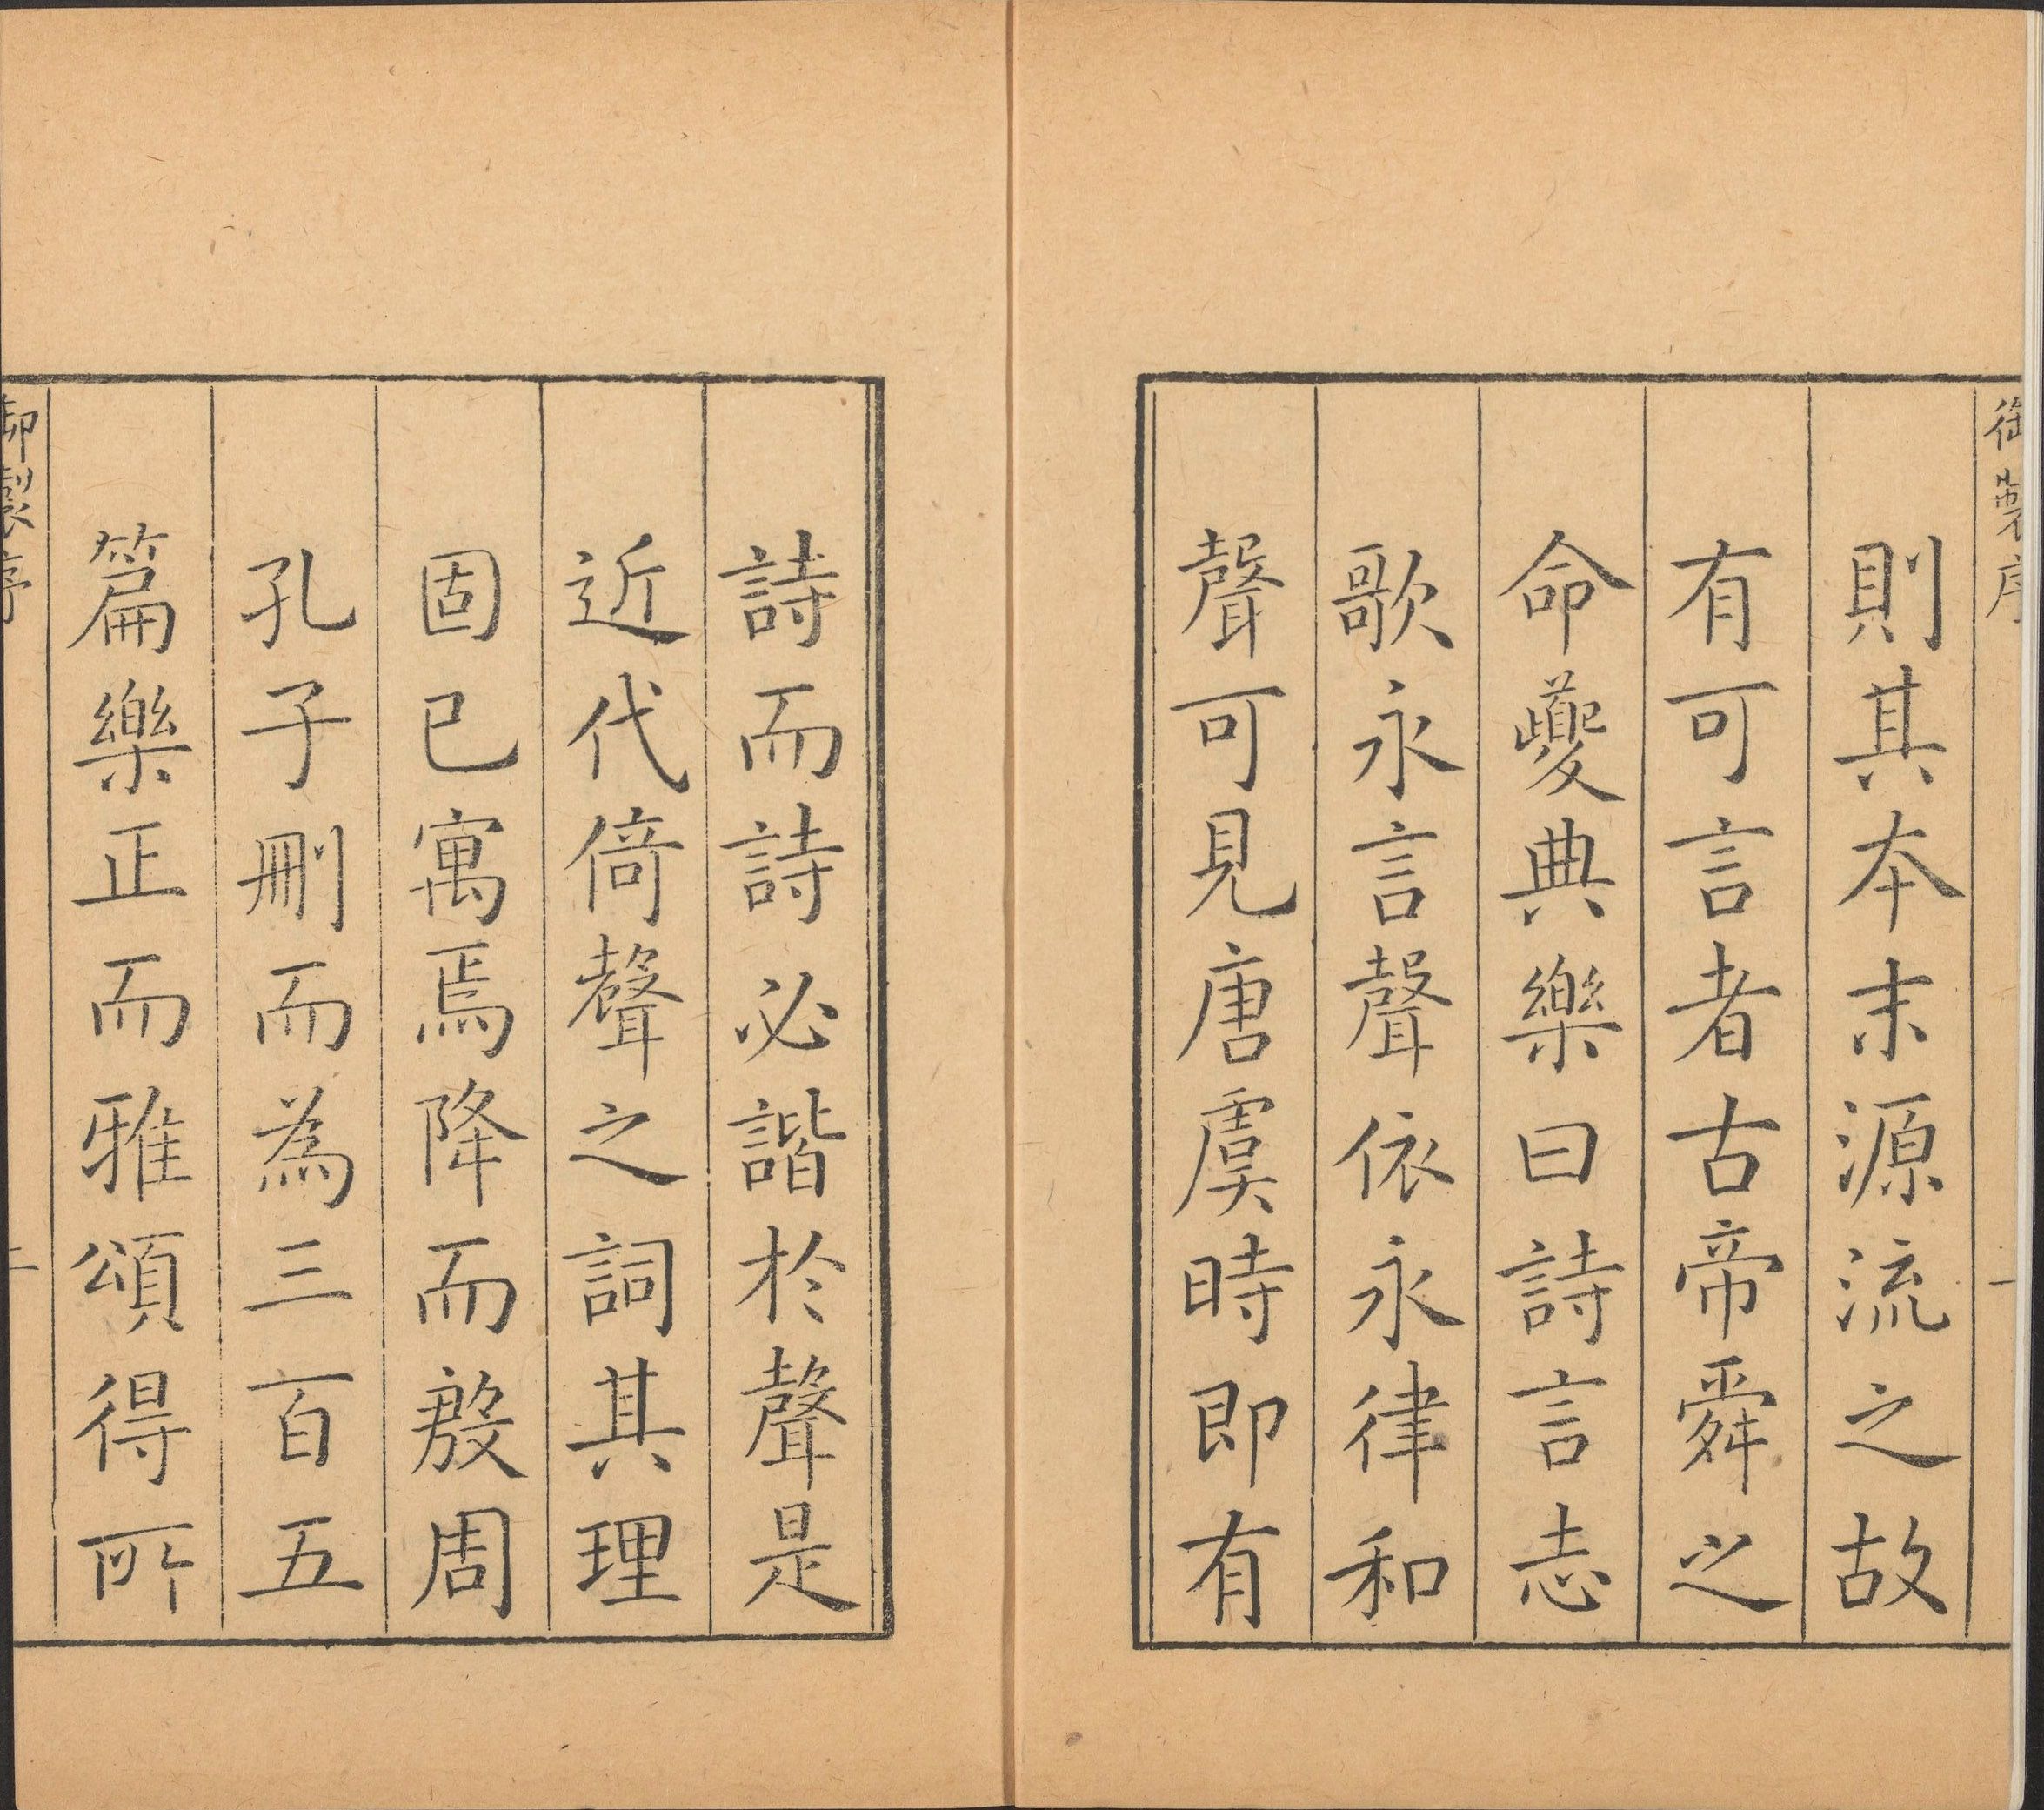 御製序
一
則其本末源流之故
有可言者古帝舜之
命夔典樂曰詩言志
歌永言聲依永律和
聲可見唐虞時即有
詩而詩必諧於聲是
近代倚聲之詞其理
固已寓焉降而殷周
孔子刪而為三百五
篇樂正而雅頌得所
御製序
二